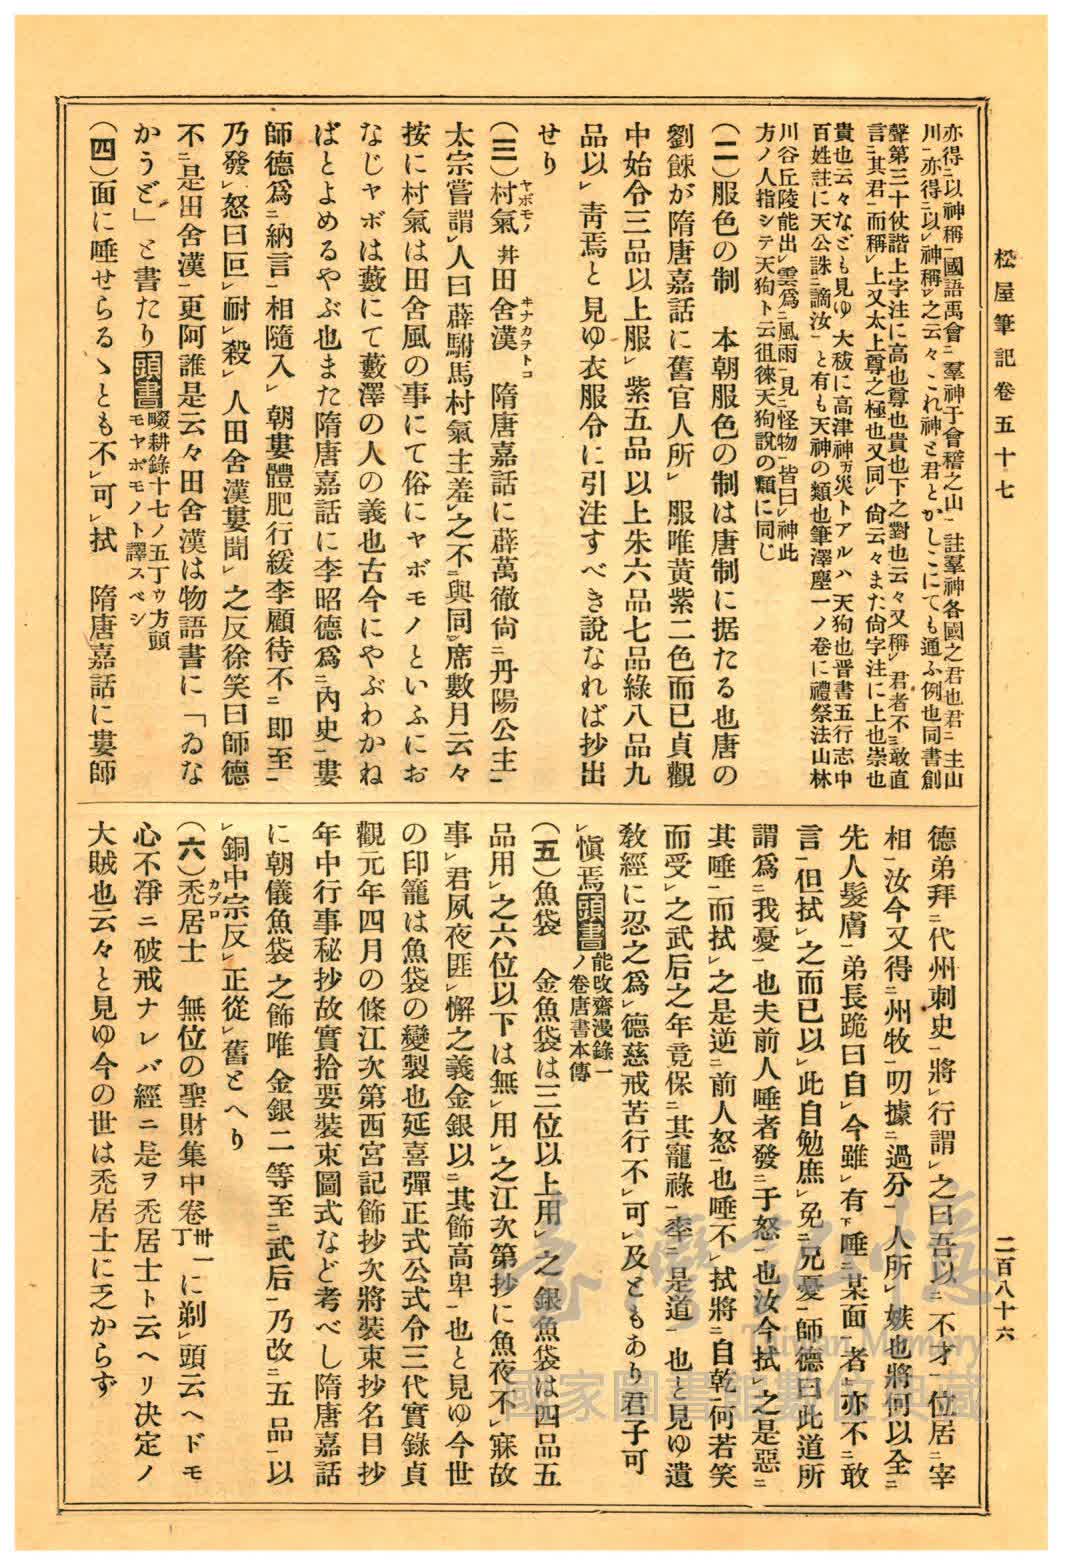 松屋筆記卷五十七
二百八十六
亦得ニ以神稱一國語禹會ニ羣神于會稽之山一註羣神各國之君也君ニ主山
川一亦得ニ以レ神稱レ之云々これ神と君とかしこにても通ふ例也同書創
聲第三十仗諧上字注に高也尊也貴也下之對也云々又稱レ君者不ニ敢直
言ニ其君一而稱レ上又太上尊之極也又同レ尙云々また尙字注に上也崇也
貴也云々なども見ゆ 大秡に高津神ノ災トアルハ 天狗也晋書五行志中
百姓註に天公誅ニ謫汝一と有も天神の類也筆澤塵一ノ卷に禮祭法山林
川谷丘陵能出レ雲爲ニ風雨一見ニ怪物一皆曰レ神此
方ノ人指シテ天狗ト云徂徠天狗說の類に同じ
(二)服色の制 本朝服色の制は唐制に据たる也唐の
劉餗が隋唐嘉話に舊官人所レ服唯黃紫二色而已貞觀
中始令三品以上服レ紫五品以上朱六品七品綠八品九
品以レ靑焉と見ゆ衣服令に引注すべき說なれば抄出
せり
(三)村氣ヤボモノ井田舍漢ヰナカヲトコ 隋唐嘉話に薜萬徹尙ニ丹陽公主一
太宗嘗謂レ人曰薜駙馬村氣主羞レ之不ニ與同レ席數月云々
按に村氣は田舍風の事にて俗にヤボモノといふにお
なじヤボは藪にて藪澤の人の義也古今にやぶわかね
ばとよめるやぶ也また隋唐嘉話に李昭德爲ニ內史一婁
師德爲ニ納言一相隨入レ朝婁體肥行緩李顧待不ニ即至一
乃發レ怒曰叵レ耐レ殺レ人田舍漢婁聞レ之反徐笑曰師德
不ニ是田舍漢一更阿誰是云々田舍漢は物語書に「ゐな
かうど」と書たり頭書輟耕錄十七ノ五丁ウ方頭
モヤボモノト譯スベシ
(四)面に唾せらるゝとも不レ可レ拭 隋唐嘉話に婁師
德弟拜ニ代州刺史一將レ行謂レ之曰吾以ニ不才一位居ニ宰
相一汝今又得ニ州牧一叨據ニ過分一人所レ嫉也將何以全ニ
先人髮膚一弟長跪曰自レ今雖レ有下唾ニ某面一者上亦不ニ敢
言一但拭レ之而已以レ此自勉庶レ免ニ兄憂一師德曰此道所
謂爲ニ我憂一也夫前人唾者發ニ于怒一也汝今拭レ之是惡ニ
其唾一而拭レ之是逆ニ前人怒一也唾不レ拭將ニ自乾一何若笑
而受レ之武后之年竟保ニ其寵祿一率ニ是道一也と見ゆ遺
敎經に忍之爲レ德慈戒苦行不レ可レ及ともあり君子可
レ愼焉頭書能改齋漫錄一
ノ卷唐書本傳
(五)魚袋 金魚袋は三位以上用レ之銀魚袋は四品五
品用レ之六位以下は無レ用レ之江次第抄に魚夜不レ寐故
事レ君夙夜匪レ懈之義金銀以ニ其飾高卑一也と見ゆ今世
の印籠は魚袋の變製也延喜彈正式公式令三代實錄貞
觀元年四月の條江次第西宮記餝抄次將裝束抄名目抄
年中行事秘抄故實拾要裝束圖式など考べし隋唐嘉話
に朝儀魚袋之飾唯金銀二等至ニ武后一乃改ニ五品一以
レ銅中宗反レ正從レ舊とへり
(六)禿居士カブロ 無位の聖財集中卷卅一丁に剃レ頭云ヘドモ
心不淨ニ破戒ナレバ經ニ是ヲ禿居士ト云ヘリ決定ノ
大賊也云々と見ゆ今の世は禿居士に乏からず
臺灣記憶
Taiwan Memory
國家圖書館數位典藏